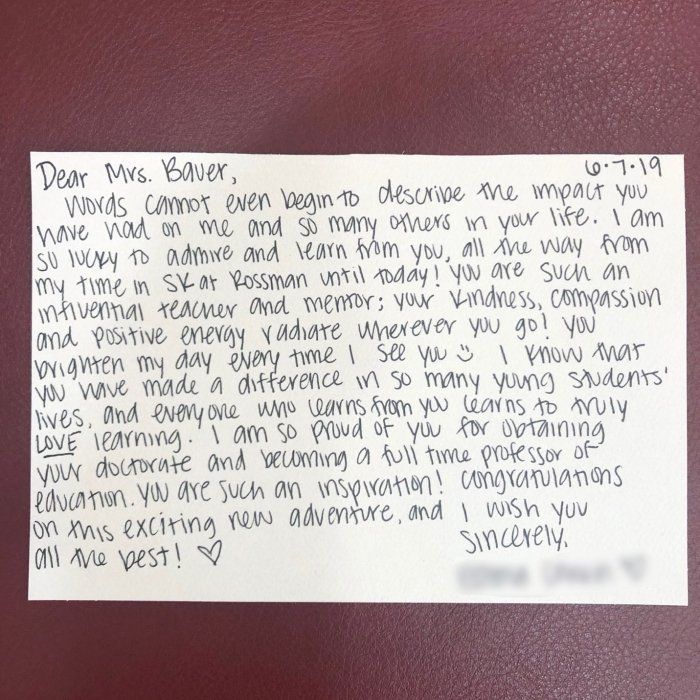 Dear Mrs. Bauer, 6.7.19
Words cannot even begin to describe the impact you
have had on me and so many others in your life. I am
so lucky to admire and learn from you, all the way from
my time in SK at Rossman until today! You are such an
influential teacher and mentor; your kindness, compassion
and positive energy radiate wherever you go! You
brighten my day every time I see you ☺ I know that
you have made a difference in so many young students'
lives, and everyone who learns from you learns to truly
LOVE learning. I am so proud of you for obtaining
your doctorate and becoming a full time professor of
education. You are such an inspiration! Congratulations
on this exciting new adventure, and I wish you
all the best! ♡ Sincerely,
♡